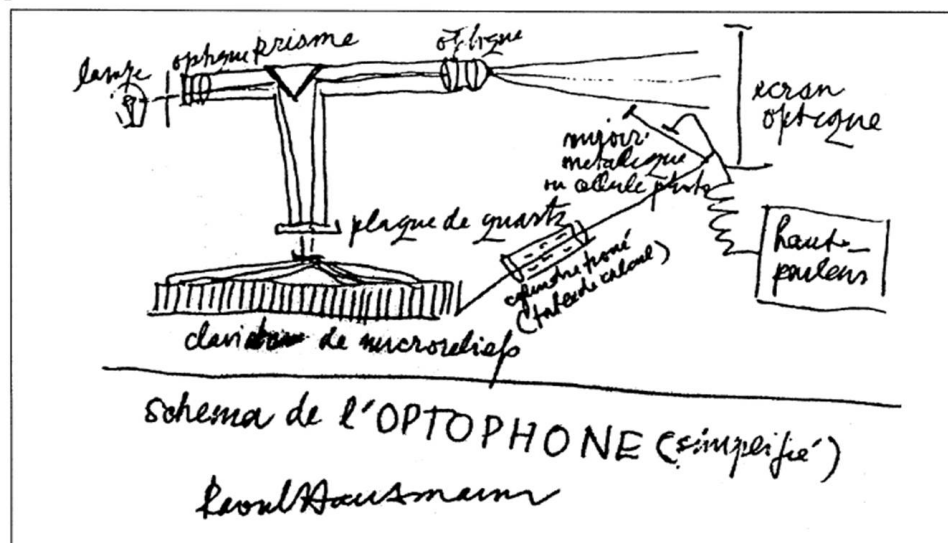 lampe
optique
prisme
optique
ecran
optique
miroir
metalique
ou cellule photo
plaque de quartz
cylindre troué
(table de calcul)
haut-
parleur
clavier de microreliefs
schema de l'OPTOPHONE (simplifié)
Raoul Hausmann